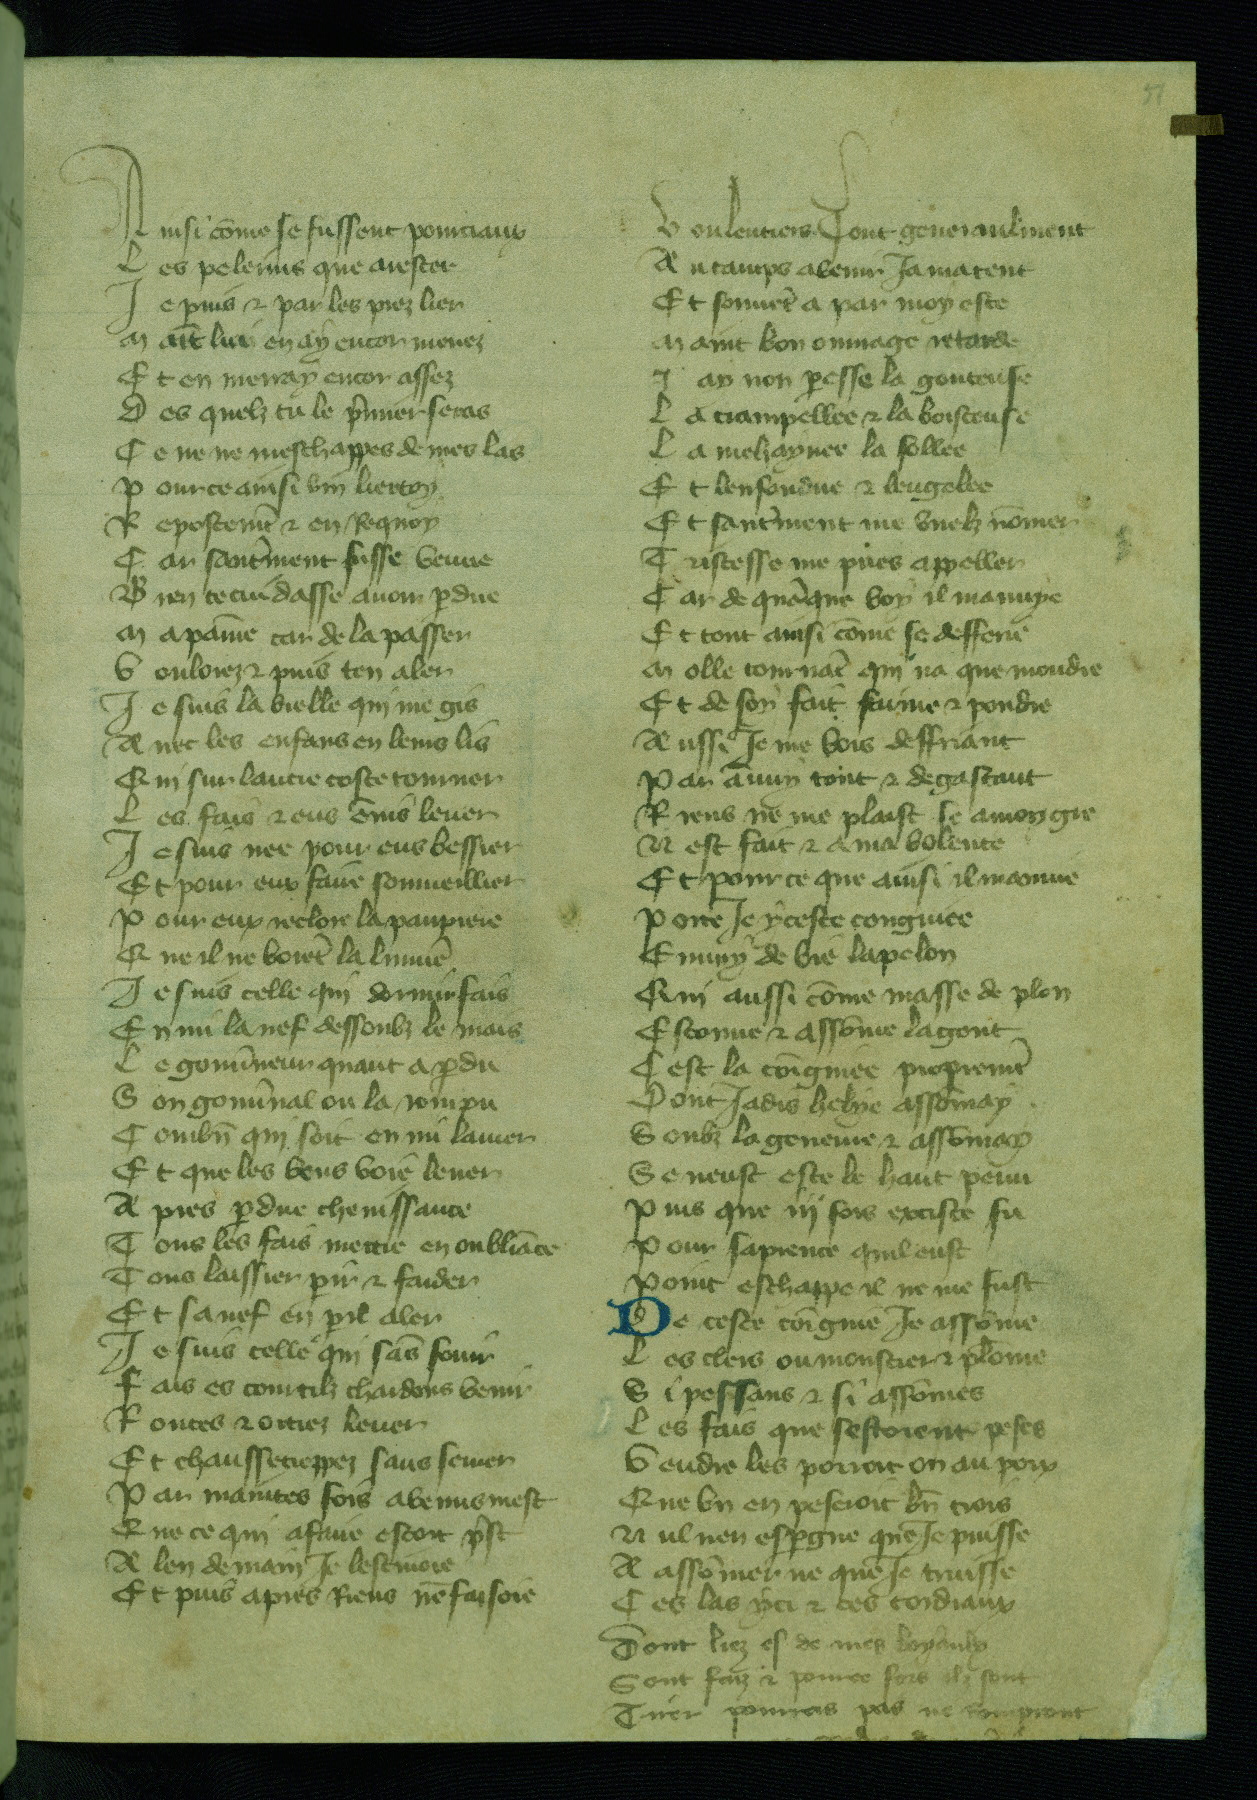 51
Ainsi cōme se fussent pourciaux
Les pelerins que arester
Je puis & par les piez lier
Maīt lieu en ay encor menez
Et en menray encor assez
Des quelz tu le p̄mier seras
Ce ne me meschappes de mes las
Pour ce ainsi vin lier toy
Repostem̄t & en requoy
Car sant'ment fusse venue
Bien te cuidasse auoir pdue
Ma pāme car de la passer
Vouloiez & puis ten aler
Je suis la vielle qui me gis
Auec les enfans en leurs lis
Qui sur lautre coste tourner
Les fais & eus ēnuis leuer
Je suis nee pour eus bessier
Et pour eux faire sommeillier
Pour eux reclore la paupiere
Que il ne voiēt la lumiē
Je suis celle qui dormir fais
Enmi la nef dessoubz le mais
Le gouv̄neur quant a pdu
Son gouv̄nal ou la rompu
Combn̄ qui soit en mi la mer
Et que les vens voiē leuer
Apres pdue cheuissance
Tous les fais mettre en oubliāce
Tous laissier pir & faider
Et sa nef en pil aler
Je suis celle qui sās fouir
Fais es courtilz chardons venir
Ronces & orties leuer
Et chaussetreppez sans semer
Par maintes fois avenu mest
Que ce qui a faire estoit p̄st
A lendemain Je lestiuoie
Et puis apres Riens nē faisoie
Voulentiers Tout generaulment
Au tamps avenir Jamatent
Et souuēt a par moy este
Maint bon ouurage retarde
Jay non pesse la gouteuse
La crampellee & la boisteuse
La mehaynee la follee
Et lenfondue & lengelee
Et sant'ment me vuelz nōmer
Tristesse me pues appeller
Car de quāque voy il manuye
Et tout ainsi cōme se deffrie
Molle tournāt qui na que moudre
Et de son fait farine & poudre
Aussi Je me vois deffriant
Par anuy tout & degastant
Riens ne me plaist se a mon gre
Nest fait & a ma volente
Et pour ce que ainsi il manuie
Porte Je yceste congniee
Enuuy de vie lapelon
Qui aussi cōme masse de plon
Estonne & assōme la gent
Cest la cōgniee propremt̄
Dont Jadis helye assōmay
Soubz la geneure & assōmay
Se neust este le haut peuu
Puis que iij fois exciste fu
Pour sapience quil eust
Point eschappe il ne me fust
De ceste cōgniē Je assōme
Les clers ou moustier & plōme
Si pessans & si assōmes
Les fais que sestoient peses
Vendre les porroit on au poix
Que vn en peseroit bn̄ trois
Nul nen espgne que Je puisse
A assōmer ne que Je truisse
Ces las yci & ces cordiaux
Dont liez es de mes boyaulx
Sont faiz & pource fors ilz sont
Tuer pourras pas ne rompront